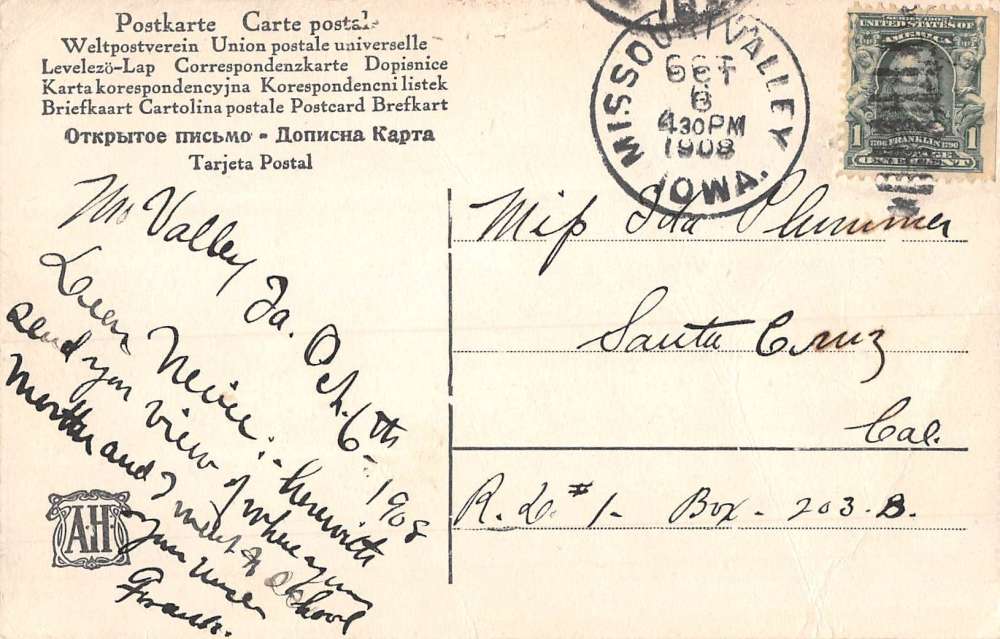 Postkarte Carte postale
Weltpostverein Union postale universelle
Levelezö-Lap Correspondenzkarte Dopisnice
Karta korespondencyjna Korespondencni listek
Briefkaart Cartolina postale Postcard Brefkart
Открытое письмо - Дописна Карта
Tarjeta Postal
MISSOURI VALLEY
OCT
6
4 30 PM
1908
IOWA.
SERIES 1902
UNITED STATES OF
AMERICA
1 1
1706 FRANKLIN 1790
POSTAGE
ONE CENT
Mo Valley Ia. Oct. 6th 1908
Dear Neice:- herewith
send you view of where your
Mother and I went to School
Your Uncle
Frank.
A.H
Miss Ida Plummer
Santa Cruz
Cal.
R. D. #1- Box - 203-B.